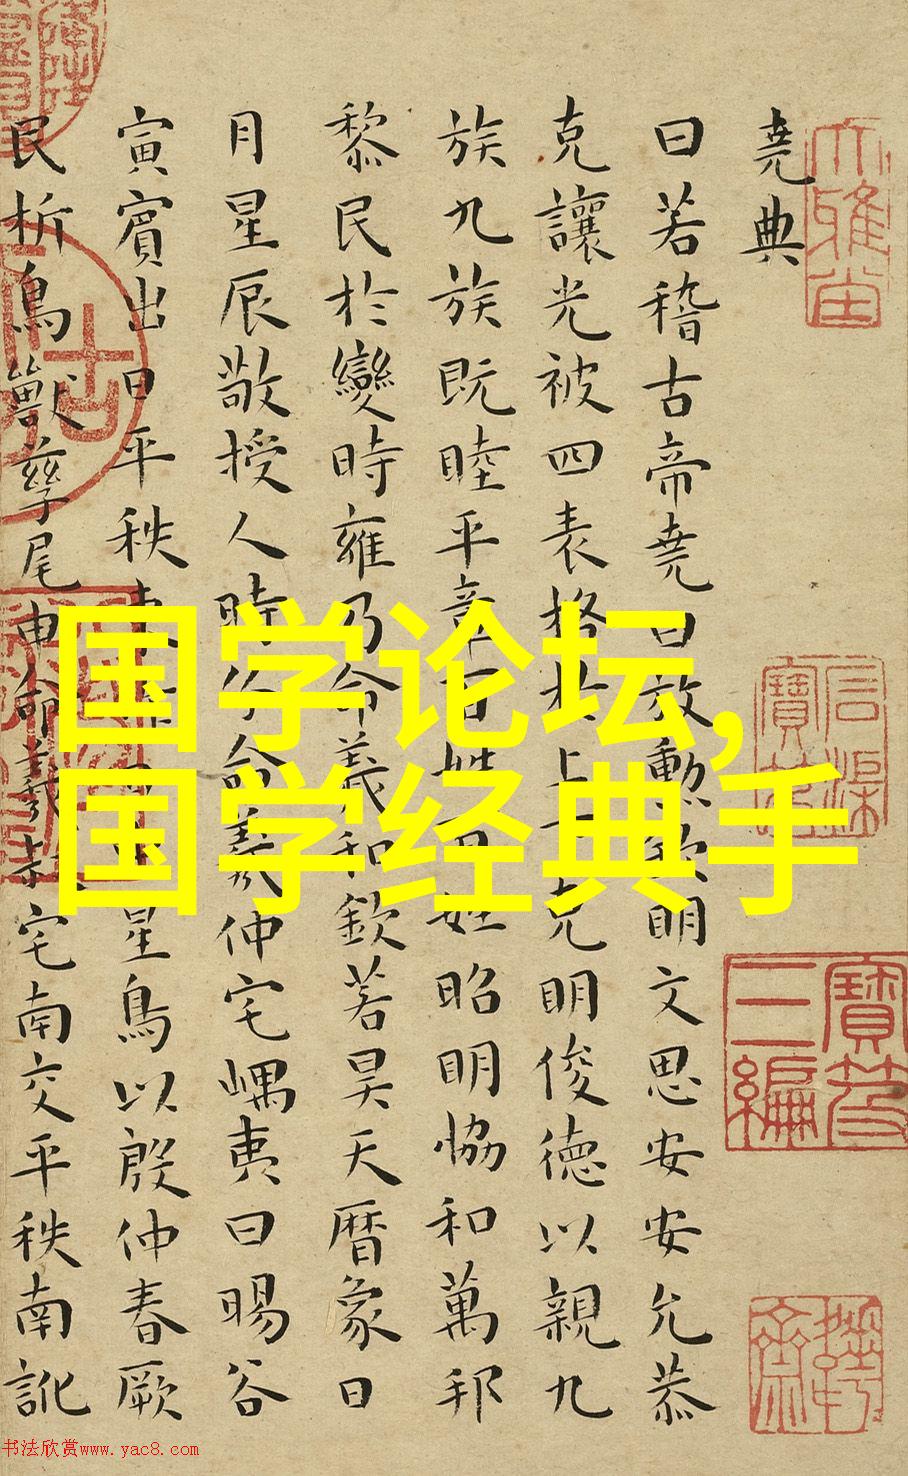 堯典
曰若稽古帝堯曰放勳欽明文思安安允恭
克讓光被四表格於上下克明俊德以親九
族九族既睦平章百姓百姓昭明恊和萬邦
黎民於變時雍乃命羲和欽若昊天曆象日
月星辰敬授人時分命羲仲宅嵎夷曰暘谷
寅賓出日平秩東星鳥以殷仲春厥
民析鳥獸孳尾申命羲叔宅南交平秩南訛
国学论坛,
国学经典手
石渠寶笈
寶笈三編
书法欣赏www.yac8.com